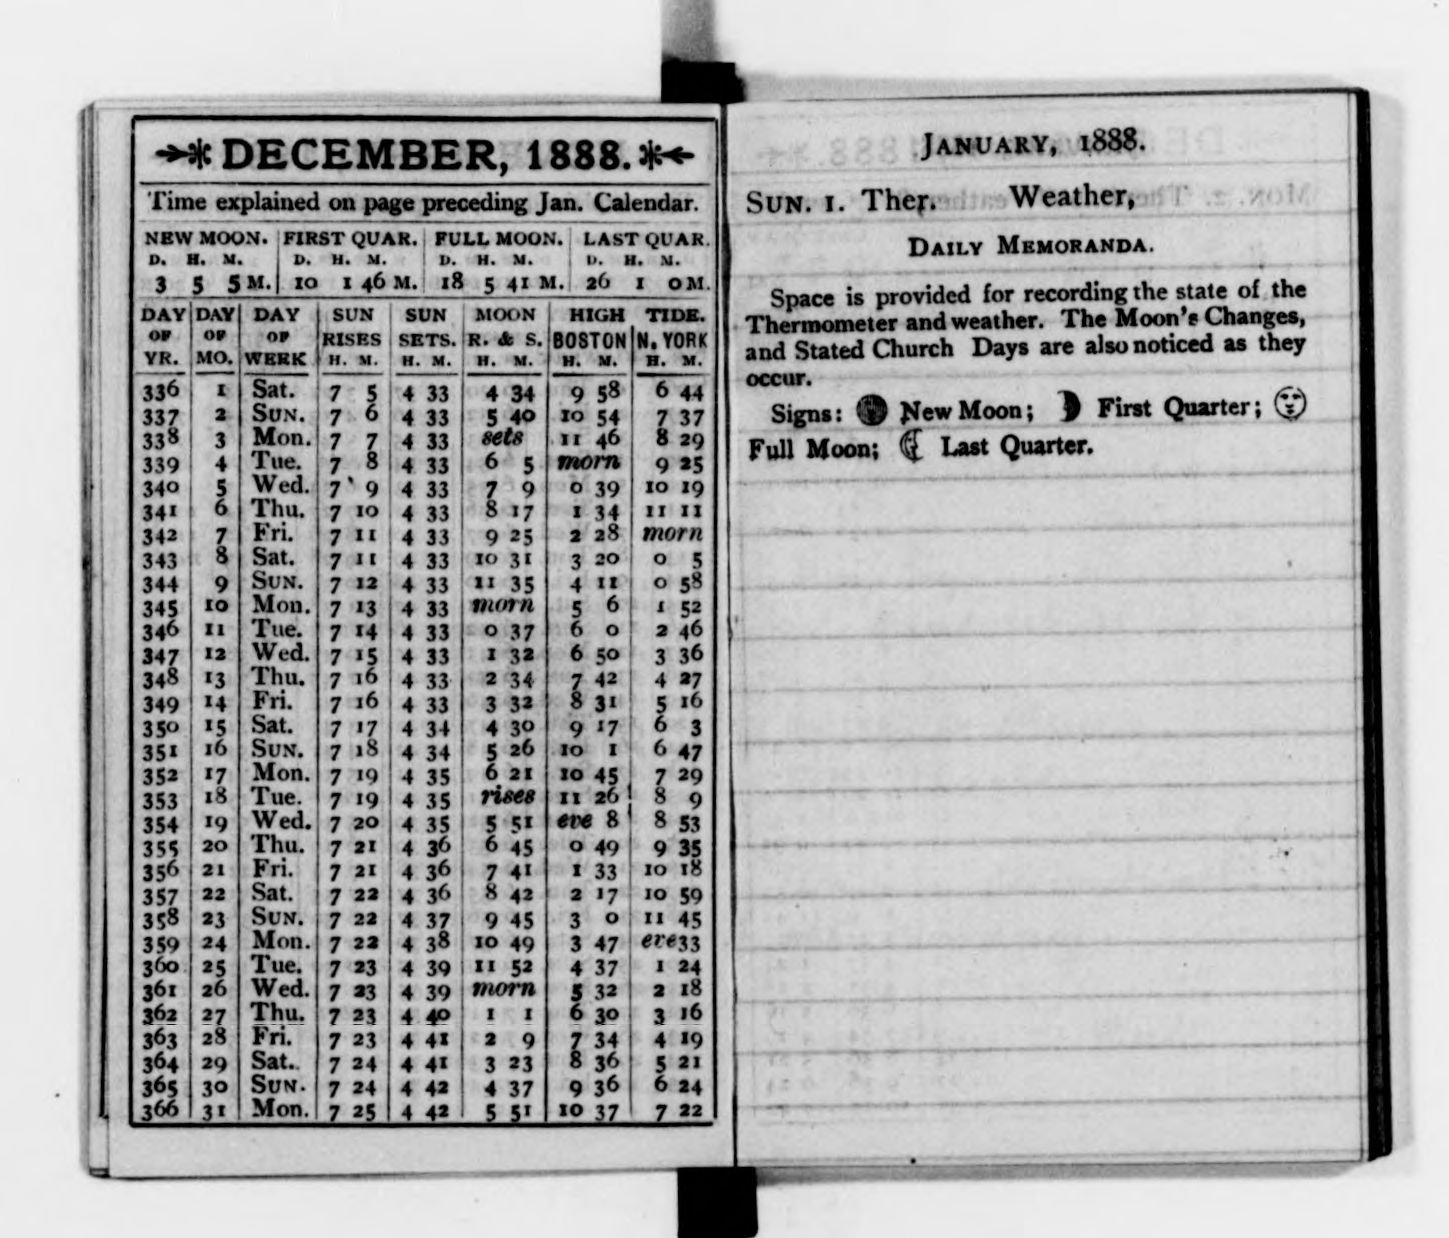 DECEMBER, 1888.
Time explained on page preceding Jan. Calendar.
NEW MOON. FIRST QUAR. FULL MOON. LAST QUAR.
D. H. M. D. H. M. D. H. M. D. H. M.
3 5 5 M. 10 1 46 M. 18 5 41 M. 26 1 0 M.
DAY DAY DAY SUN SUN MOON HIGH TIDE.
OF OF OF RISES SETS. R. & S. BOSTON N. YORK
YR. MO. WEEK H. M. H. M. H. M. H. M. H. M.
336 1 Sat. 7 5 4 33 4 34 9 58 6 44
337 2 SUN. 7 6 4 33 5 40 10 54 7 37
338 3 Mon. 7 7 4 33 sets 11 46 8 29
339 4 Tue. 7 8 4 33 6 5 morn 9 25
340 5 Wed. 7 9 4 33 7 9 0 39 10 19
341 6 Thu. 7 10 4 33 8 17 1 34 11 11
342 7 Fri. 7 11 4 33 9 25 2 28 morn
343 8 Sat. 7 11 4 33 10 31 3 20 0 5
344 9 SUN. 7 12 4 33 11 35 4 11 0 58
345 10 Mon. 7 13 4 33 morn 5 6 1 52
346 11 Tue. 7 14 4 33 0 37 6 0 2 46
347 12 Wed. 7 15 4 33 1 32 6 50 3 36
348 13 Thu. 7 16 4 33 2 34 7 42 4 27
349 14 Fri. 7 16 4 33 3 32 8 31 5 16
350 15 Sat. 7 17 4 34 4 30 9 17 6 3
351 16 SUN. 7 18 4 34 5 26 10 1 6 47
352 17 Mon. 7 19 4 35 6 21 10 45 7 29
353 18 Tue. 7 19 4 35 rises 11 26 8 9
354 19 Wed. 7 20 4 35 5 51 eve 8 8 53
355 20 Thu. 7 21 4 36 6 45 0 49 9 35
356 21 Fri. 7 21 4 36 7 41 1 33 10 18
357 22 Sat. 7 22 4 36 8 42 2 17 10 59
358 23 SUN. 7 22 4 37 9 45 3 0 11 45
359 24 Mon. 7 22 4 38 10 49 3 47 eve 33
360 25 Tue. 7 23 4 39 11 52 4 37 1 24
361 26 Wed. 7 23 4 39 morn 5 32 2 18
362 27 Thu. 7 23 4 40 1 1 6 30 3 16
363 28 Fri. 7 23 4 41 2 9 7 34 4 19
364 29 Sat. 7 24 4 41 3 23 8 36 5 21
365 30 SUN. 7 24 4 42 4 37 9 36 6 24
366 31 Mon. 7 25 4 42 5 51 10 37 7 22
JANUARY, 1888.
SUN. 1. Ther. Weather,
DAILY MEMORANDA.
Space is provided for recording the state of the
Thermometer and weather. The Moon's Changes,
and Stated Church Days are also noticed as they
occur.
Signs: New Moon; First Quarter;
Full Moon; Last Quarter.